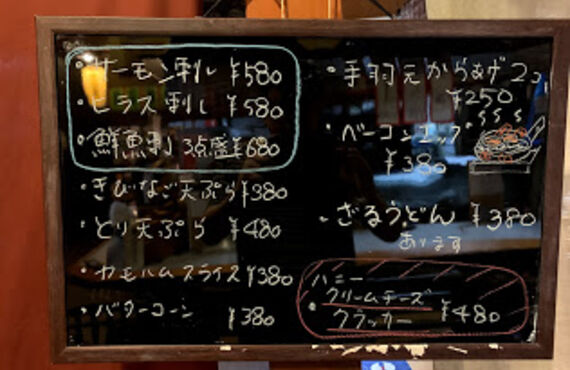 ・サーモン刺し ¥580
・ヒラス刺し ¥580
・鮮魚刺 3点盛 ¥680
・きびなご天ぷら ¥380
・とり天ぷら ¥480
・カモハムスライス ¥380
・バターコーン ¥380
・手羽元からあげ 2コ
¥250
・ベーコンエッグ
¥380
・ざるうどん ¥380
あります
ハニー
・クリームチーズ
クラッカー ¥480